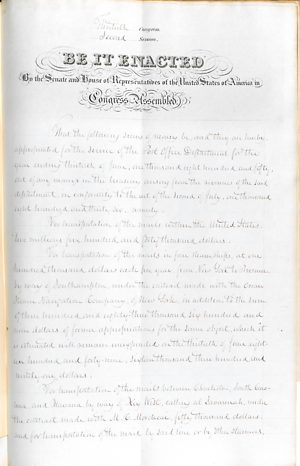 Thirtieth Congress,
Second Session,
BE IT ENACTED
By the Senate and House of Representatives of the United States of America in
Congress Assembled,
That the following sums of money be, and they are hereby
appropriated for the service of the Post Office Department for the
year ending thirtieth of June, one thousand eight hundred and fifty,
out of any money in the treasury arising from the revenues of the said
department, in conformity to the act of the second of July, one thousand
eight hundred and thirty six, namely:
For transportation of the mails within the United States,
two millions five hundred and fifty thousand dollars.
For transportation of the mails in four steamships, at one
hundred thousand dollars each per year from New York to Bremen
by way of Southampton, under the contract made with the Ocean
Steam Navigation Company, of New York, in addition to the sum
of three hundred and eighty three thousand six hundred and
nine dollars of former appropriations for the same object, which it
is estimated will remain unexpended on the thirtieth of June eight-
een hundred and forty-nine, sixteen thousand three hundred and
ninety one dollars.
For transportation of the mails between Charleston, South Caro-
lina, and Havana by way of Key West, calling at Savannah, under
the contract made with M. C. Mordecai, fifty thousand dollars.
and for transportation of the mail by said line or by other steamers,